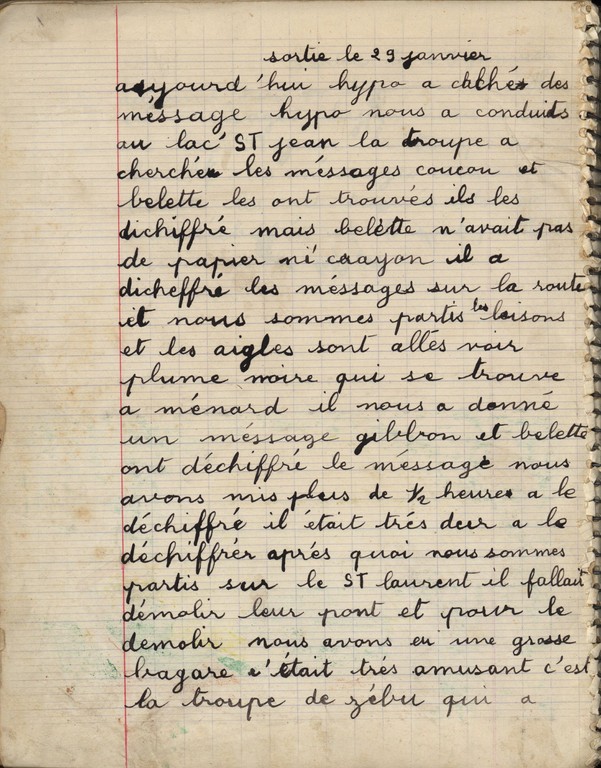 sortie le 29 janvier
aujourd'hui hypo a caché des
méssage hypo nous a conduits
au lac ST jean la troupe a
cherchée les méssages coucou et
belette les ont trouvés ils les
dichiffré mais belètte n'avait pas
de papier ni crayon il a
dicheffré les méssages sur la route
et nous sommes partis les bisons
et les aigles sont allés voir
plume noire qui se trouve
a ménard il nous a donné
un méssage gibbron et belette
ont déchiffré le méssage nous
avons mis plus de 1/2 heure a le
déchiffré il était trés dur a le
déchiffrér aprés quoi nous sommes
partis sur le ST laurent il fallait
démolir leur pont et pour le
demolir nous avons eu une grosse
bagare c'était trés amusant c'est
la troupe de zébu qui a